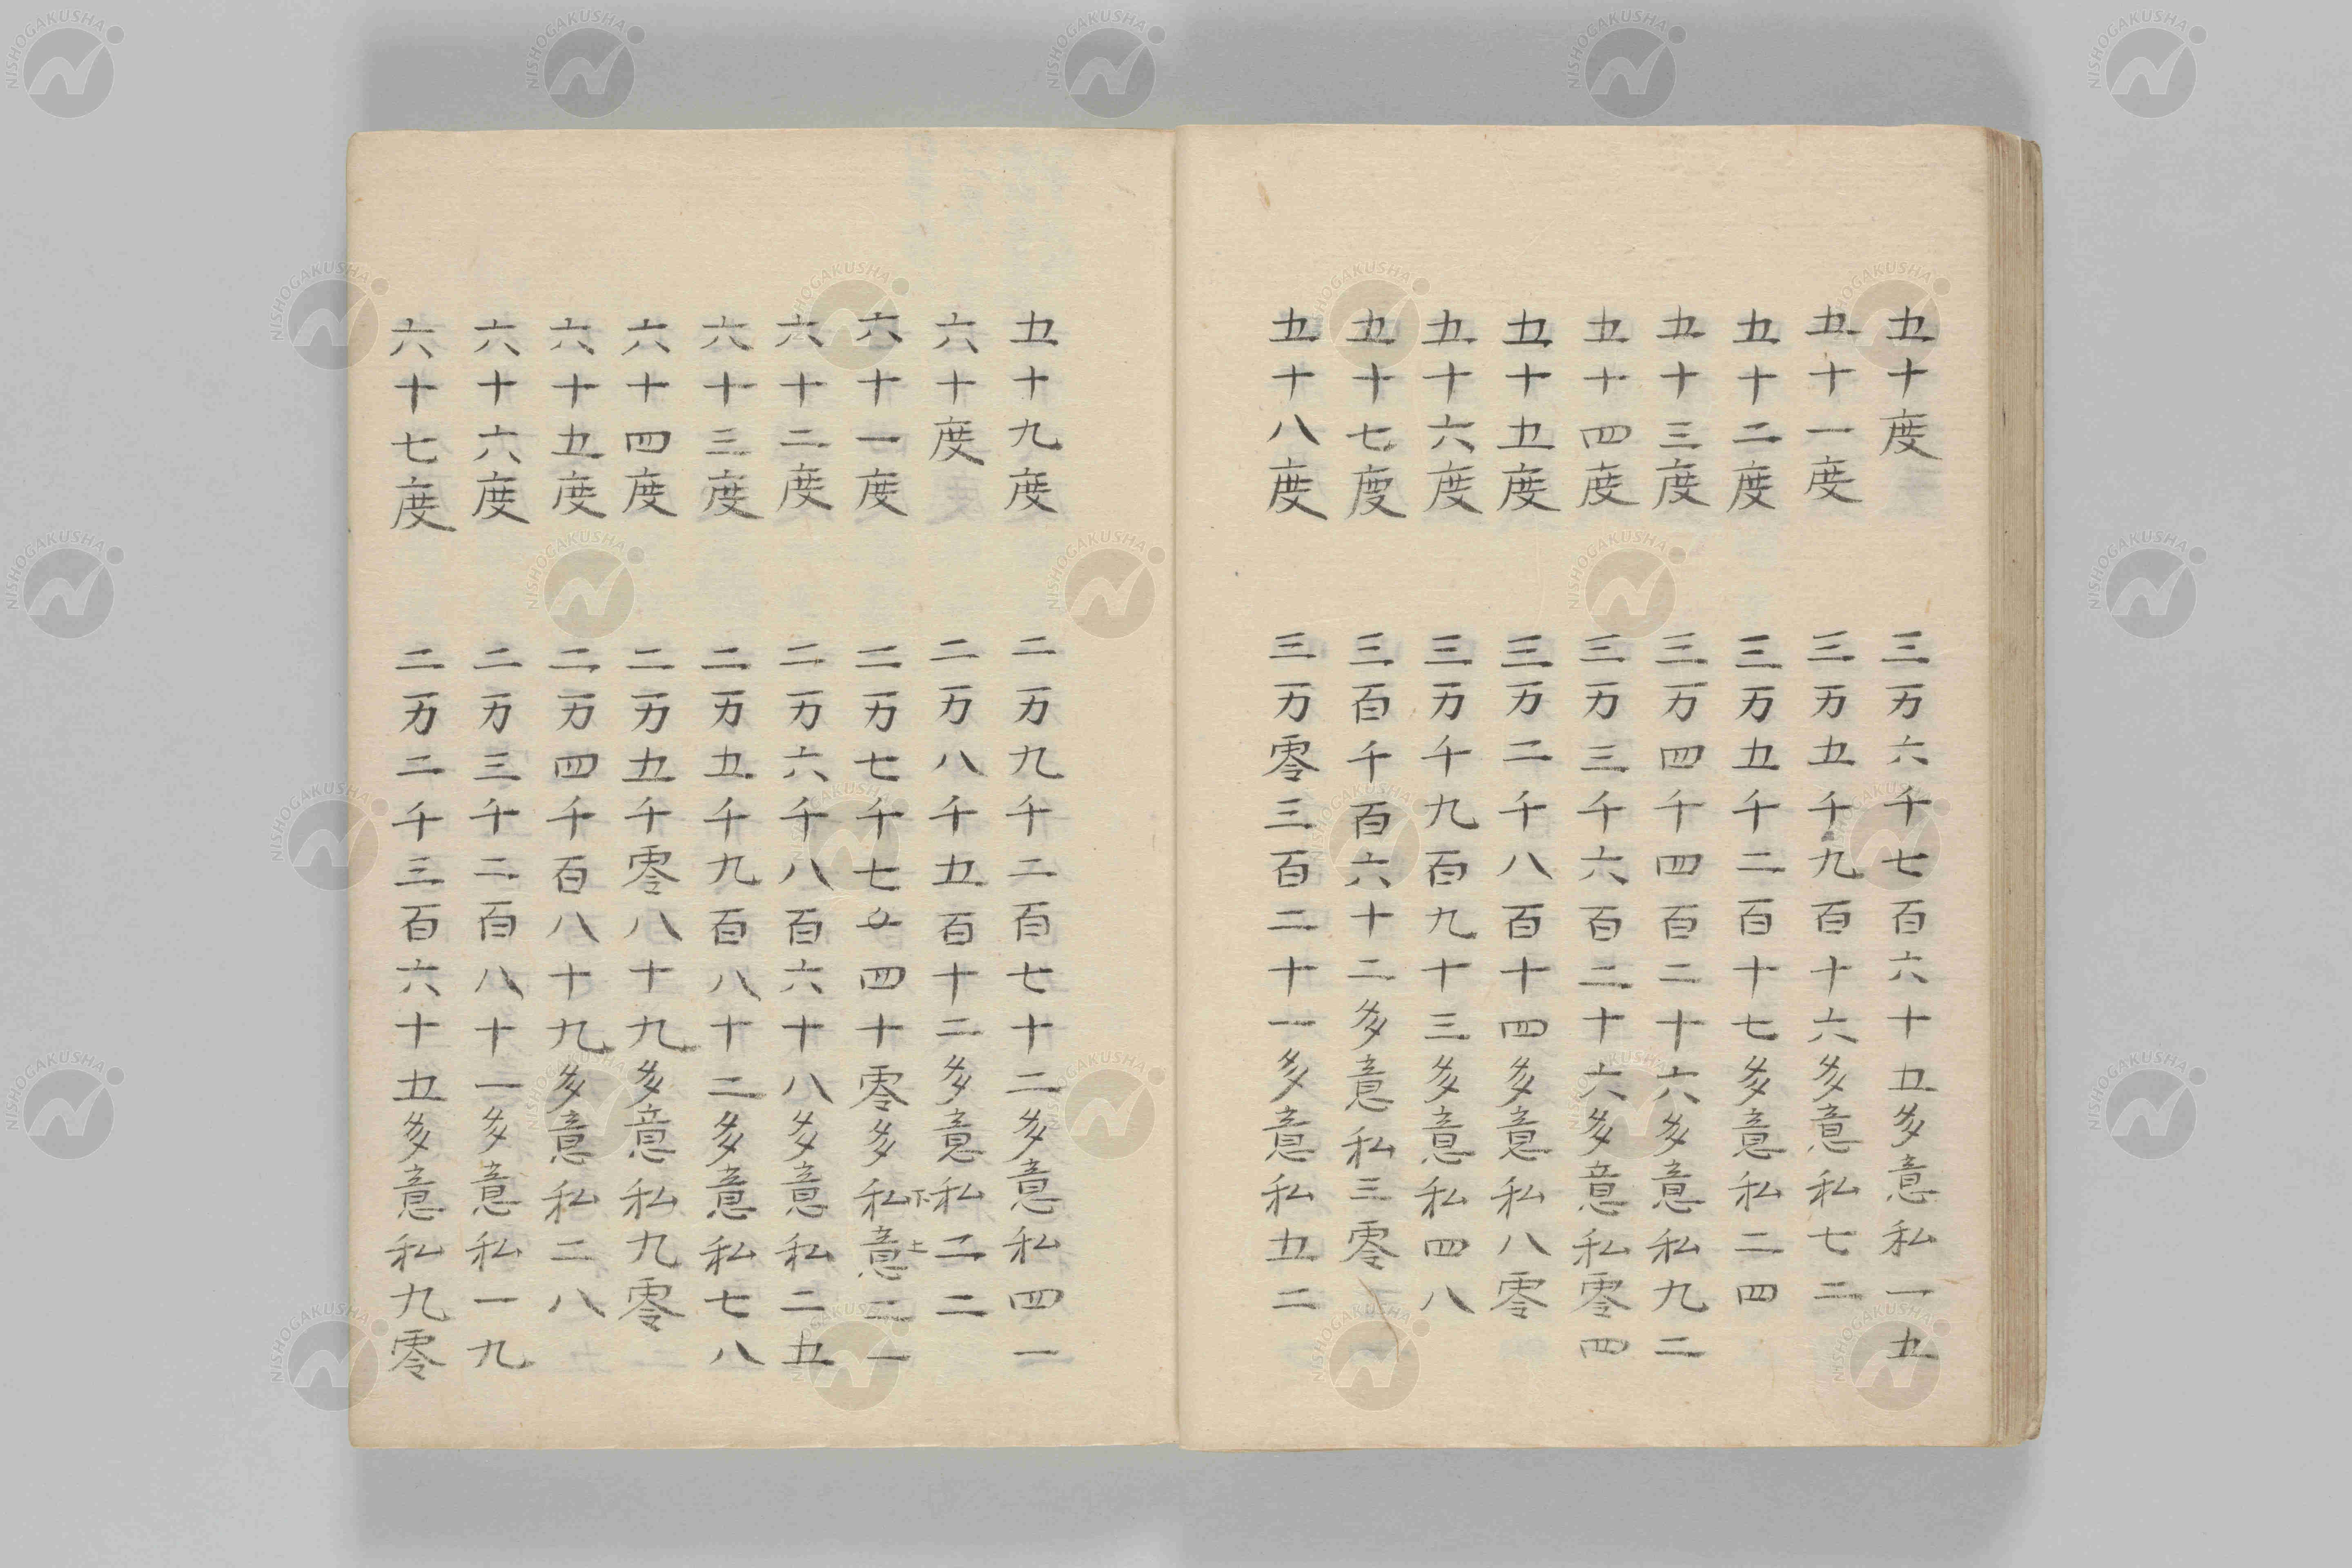 五十度 三万六千七百六十五多意私一五
五十一度 三万五千九百十六多意私七二
五十二度 三万五千二百十七多意私二四
五十三度 三万四千四百二十六多意私九二
五十四度 三万三千六百二十六多意私零四
五十五度 三万二千八百十四多意私八零
五十六度 三万千九百九十三多意私四八
五十七度 三百千百六十二多意私三零
五十八度 三万零三百二十一多意私五二
五十九度 二万九千二百七十二多意私四一
六十度 二万八千五百十二多意私二二
六十一度 二万七千七 四十零多私下意上二一
六十二度 二万六千八百六十八多意私二五
六十三度 二万五千九百八十二多意私七八
六十四度 二万五千零八十九多意私九零
六十五度 二万四千百八十九多意私二八
六十六度 二万三千二百八十一多意私一九
六十七度 二万二千三百六十五多意私九零
NISHOGAKUSHA